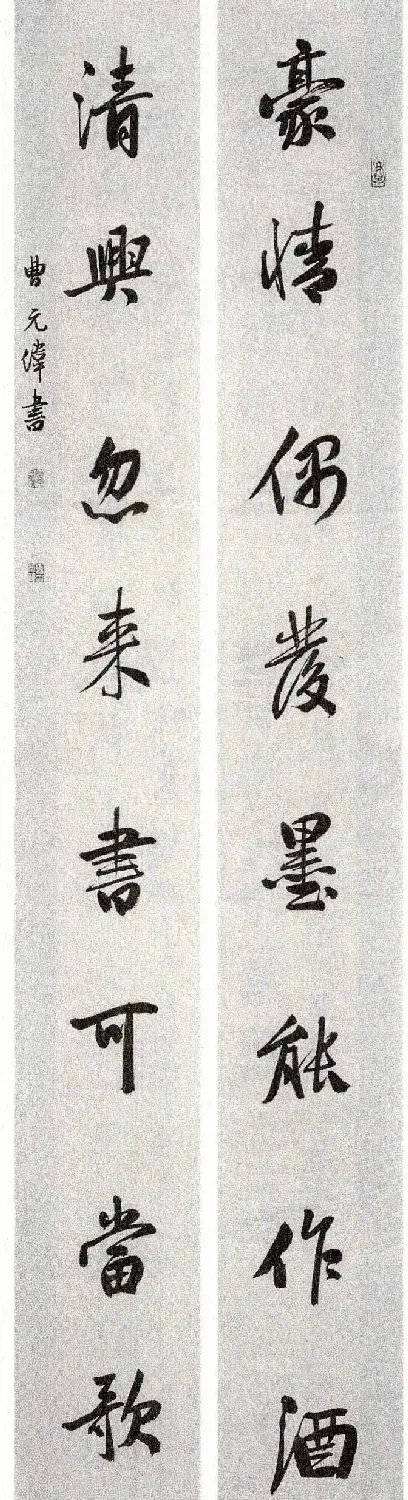 豪情偶發墨能作酒
清興忽来書可當歌
曹元偉書